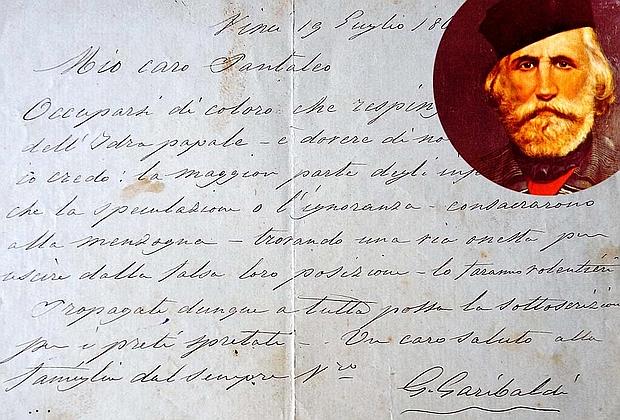 Vinci 19 Luglio 186
Mio caro Pantaleo
Occuparsi di coloro che resping
dell'Idra papale - è dovere di no
io credo: la maggior parte degli inf
che la speculazione o l'ignoranza - consacrarono
alla menzogna - trovando una via onesta per
uscire dalla falsa loro posizione - lo faranno volentieri
Propagate dunque a tutta possa la sottoscrizione
per i preti spretati - Un caro saluto alla
famiglia dal sempre Vro
G. Garibaldi